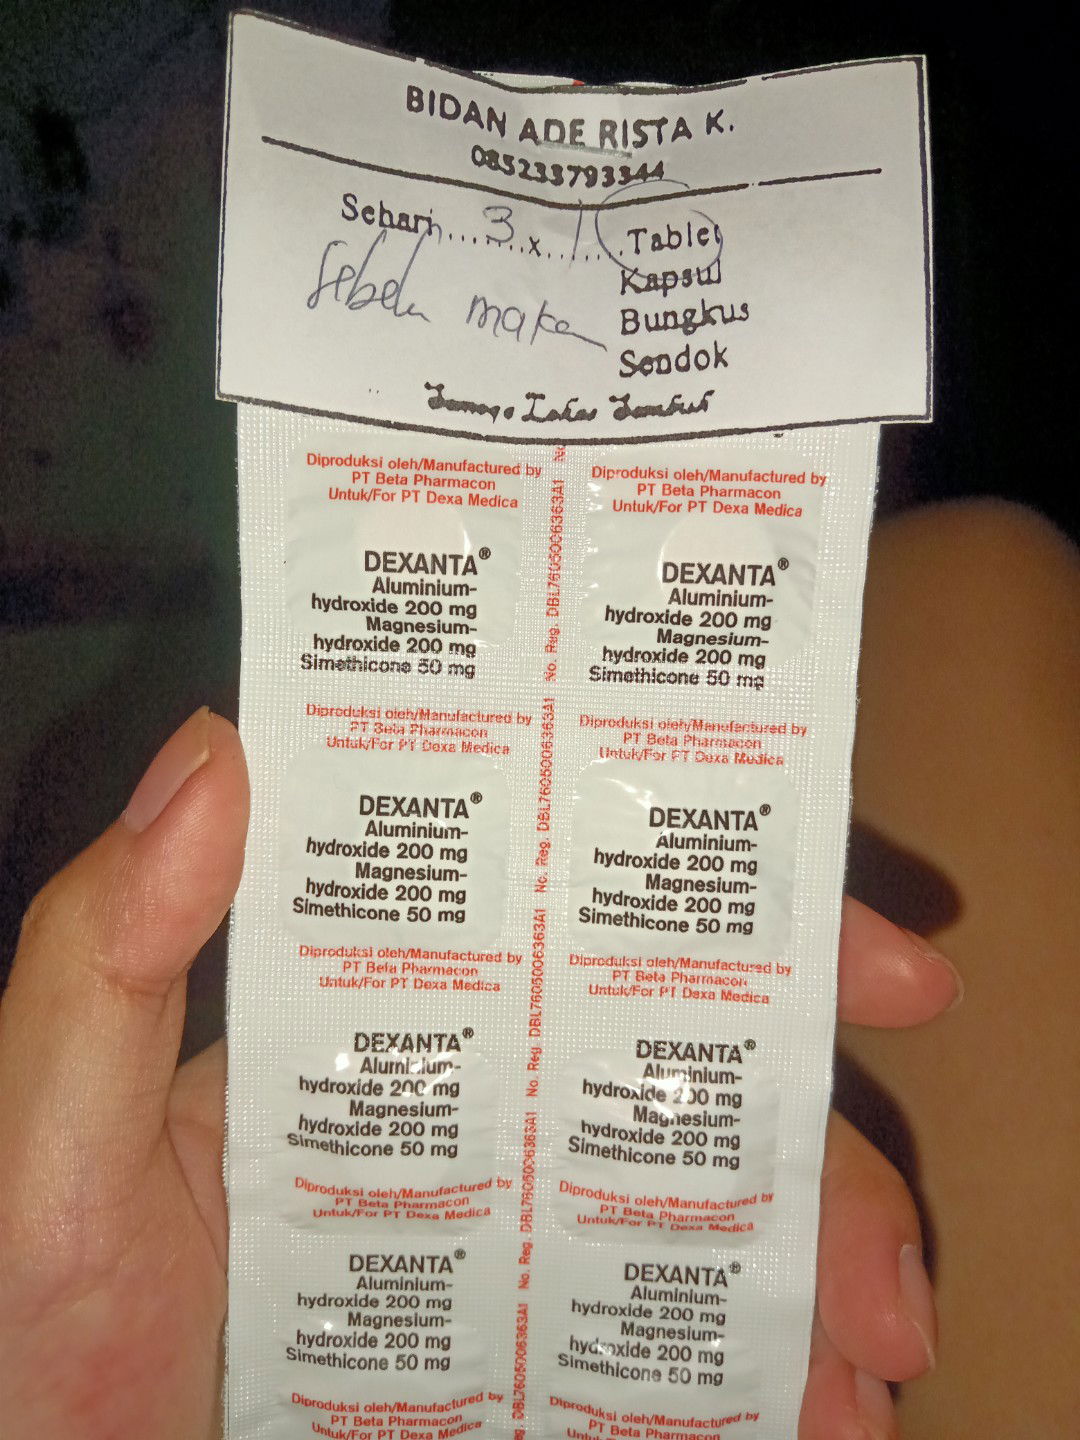 BIDAN ADE RISTA K.
085233793344
Sehari.....3..x..1....Tablet
Kapsul
Sebelu make Bungkus
Sendok
Semoga Lekas Sembuh
Diproduksi oleh/Manufactured by
PT Beta Pharmacon
Untuk/For PT Dexa Medica
Diproduksi oleh/Manufactured by
PT Beta Pharmacon
Untuk/For PT Dexa Medica
DEXANTA®
Aluminium-
hydroxide 200 mg
Magnesium-
hydroxide 200 mg
Simethicone 50 mg
DEXANTA®
Aluminium-
hydroxide 200 mg
Magnesium-
hydroxide 200 mg
Simethicone 50 mg
No. Reg. DBL7605006363A1
Diproduksi oleh/Manufactured by
PT Beta Pharmacon
Untuk/For PT Dexa Medica
Diproduksi oleh/Manufactured by
PT Beta Pharmacon
Untuk/For PT Dexa Medica
DEXANTA®
Aluminium-
hydroxide 200 mg
Magnesium-
hydroxide 200 mg
Simethicone 50 mg
DEXANTA®
Aluminium-
hydroxide 200 mg
Magnesium-
hydroxide 200 mg
Simethicone 50 mg
No. Reg. DBL7605006363A1
Diproduksi oleh/Manufactured by
PT Beta Pharmacon
Untuk/For PT Dexa Medica
Diproduksi oleh/Manufactured by
PT Beta Pharmacon
Untuk/For PT Dexa Medica
DEXANTA®
Aluminium-
hydroxide 200 mg
Magnesium-
hydroxide 200 mg
Simethicone 50 mg
DEXANTA®
Aluminium-
hydroxide 200 mg
Magnesium-
hydroxide 200 mg
Simethicone 50 mg
No. Reg. DBL7605006363A1
Diproduksi oleh/Manufactured by
PT Beta Pharmacon
Untuk/For PT Dexa Medica
Diproduksi oleh/Manufactured by
PT Beta Pharmacon
Untuk/For PT Dexa Medica
DEXANTA®
Aluminium-
hydroxide 200 mg
Magnesium-
hydroxide 200 mg
Simethicone 50 mg
DEXANTA®
Aluminium-
hydroxide 200 mg
Magnesium-
hydroxide 200 mg
Simethicone 50 mg
No. Reg. DBL7605006363A1
Diproduksi oleh/Manufactured by
PT Beta Pharmacon
Untuk/For PT Dexa Medica
Diproduksi oleh/Manufactured by
PT Beta Pharmacon
Untuk/For PT Dexa Medica